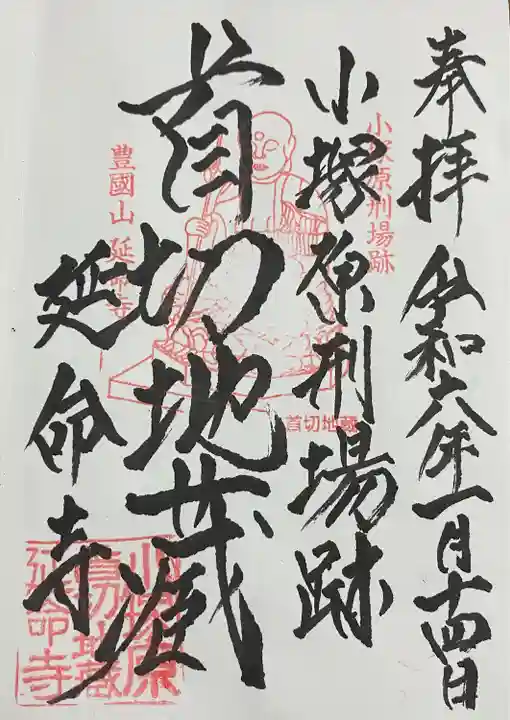 奉拝 令和六年一月十四日
小塚原刑場跡
小塚原刑場跡
首切地蔵
首切地蔵
豊國山 延命寺
延命寺
小塚原
首切地蔵
延命寺